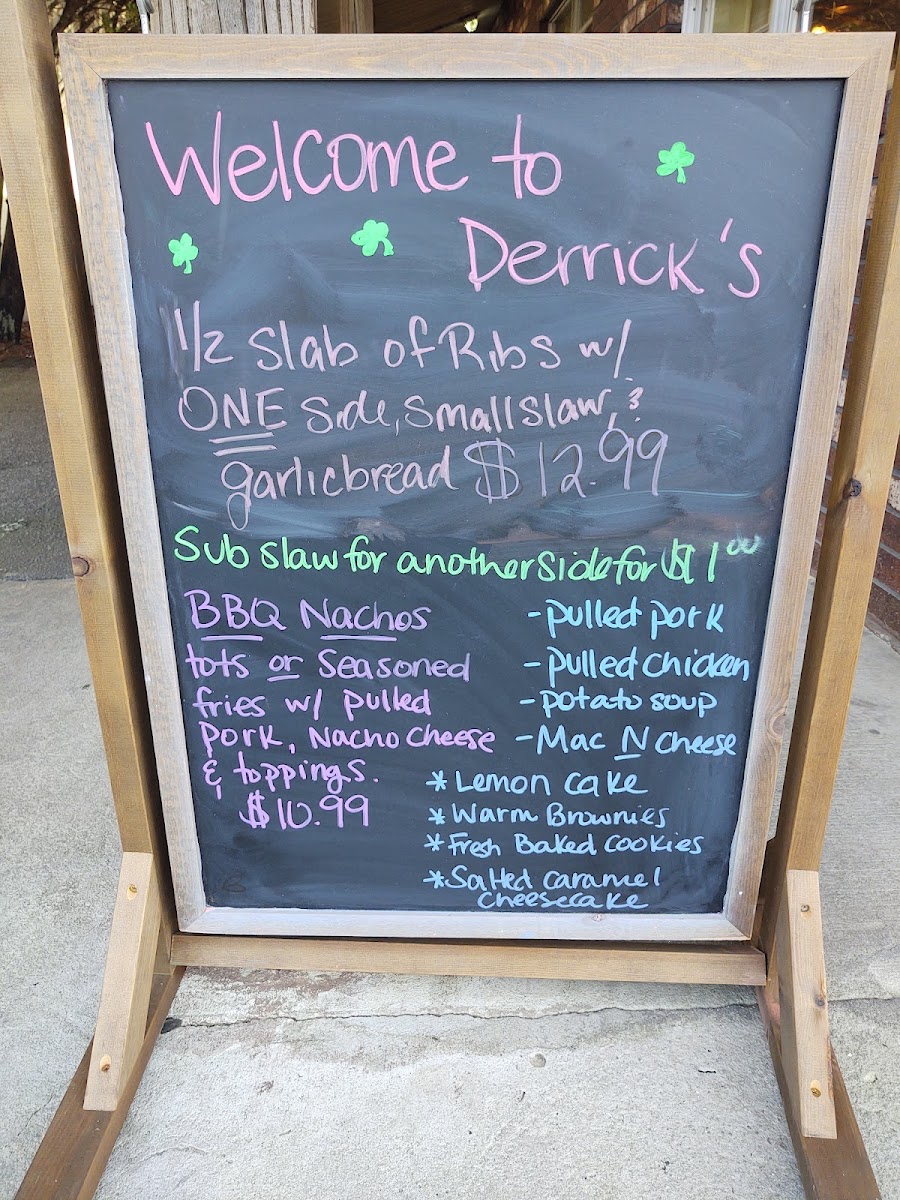 Welcome to
Derrick's
1/2 Slab of Ribs w/
ONE Side, Small Slaw, &
garlic bread $12.99
Sub slaw for another side for $1.00
BBQ Nachos
tots or Seasoned
fries w/ pulled
pork, Nacho Cheese
& toppings.
$10.99
- pulled pork
- pulled chicken
- potato soup
- Mac N cheese
* Lemon cake
* Warm Brownies
* Fresh Baked cookies
* Salted caramel
cheesecake